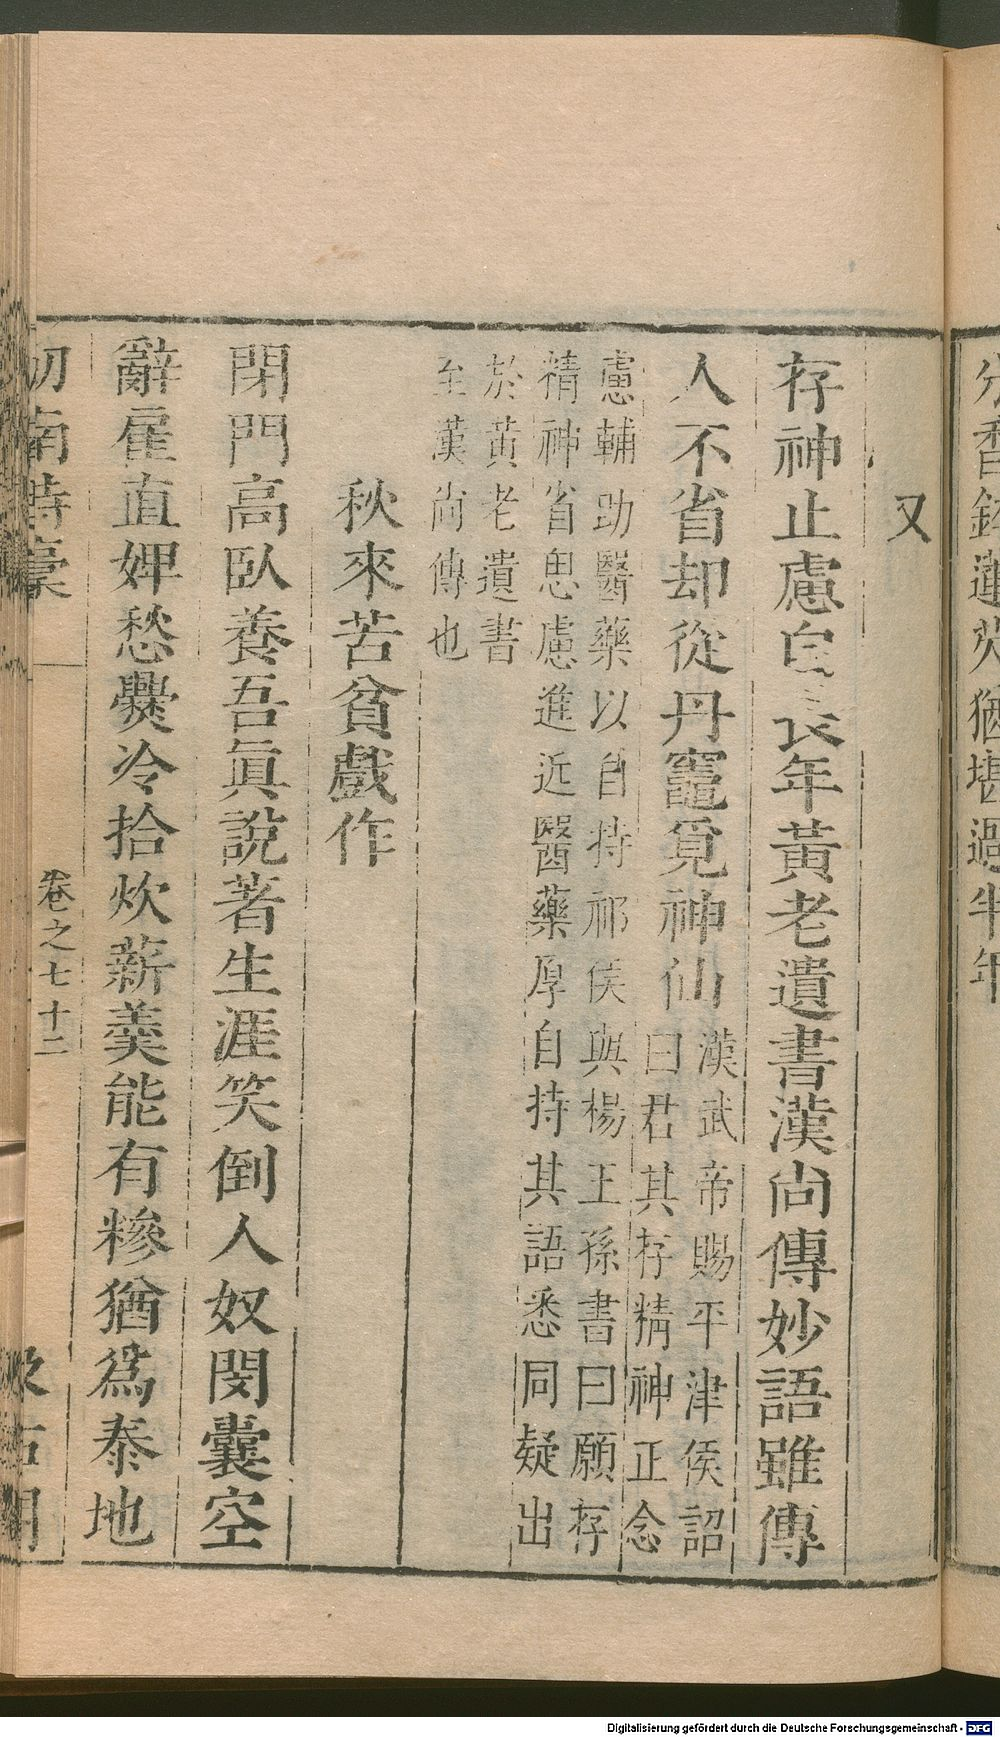 又
存神止慮自長年黃老遺書漢尚傳妙語雖傳
人不省却從丹竈覓神仙
漢武帝賜平津侯詔
曰君其存精神正念
慮輔助醫藥以自持祁侯與楊王孫書曰願存
精神省思慮進近醫藥厚自持其語悉同疑出
於黃老遺書
至漢尚傳也
秋來苦貧戲作
閉門高臥養吾眞說著生涯笑倒人奴閔囊空
辭雇直婢愁爨冷拾炊薪羹能有糝猶爲泰地
劒南詩稾
卷之七十二
汲古閣
分 猶堪過半年
Digitalisierung gefördert durch die Deutsche Forschungsgemeinschaft - DFG